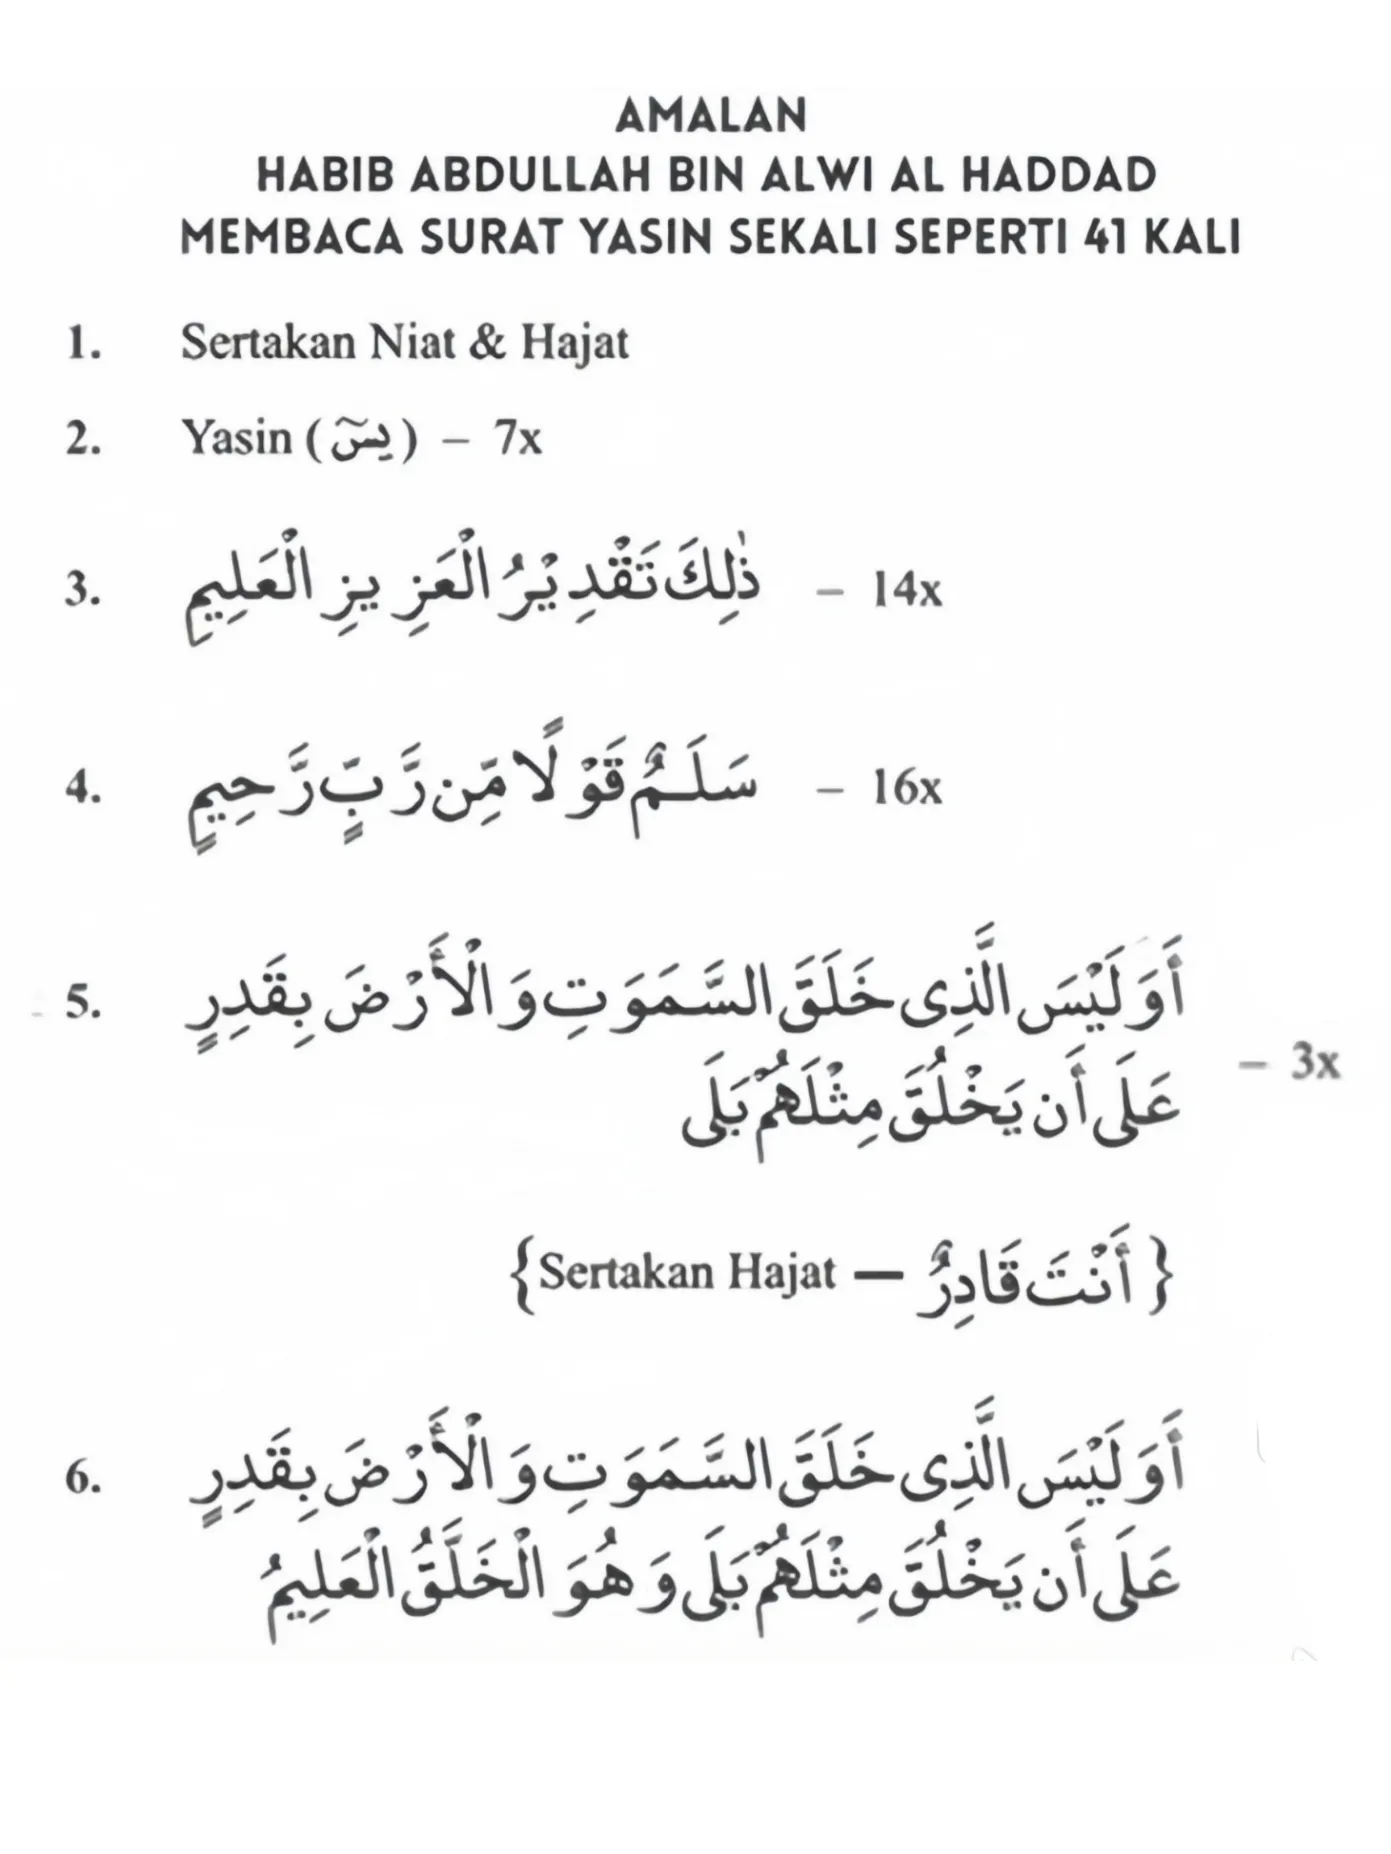 AMALAN
HABIB ABDULLAH BIN ALWI AL HADDAD
MEMBACA SURAT YASIN SEKALI SEPERTI 41 KALI
1. Sertakan Niat & Hajat
2. Yasin (يسٓ) – 7x
3. ذٰلِكَ تَقْدِيْرُ الْعَزِيزِ الْعَلِيمِ – 14x
4. سَلَمٌ قَوْلًا مِّن رَّبٍّ رَّحِيمٍ – 16x
5. أَوَلَيْسَ الَّذِى خَلَقَ السَّمَوَتِ وَالْأَرْضَ بِقَدِرٍ
عَلَى أَن يَخْلُقَ مِثْلَهُمْ بَلَى – 3x
{أَنْتَ قَادِرٌ — Sertakan Hajat}
6. أَوَلَيْسَ الَّذِى خَلَقَ السَّمَوَتِ وَالْأَرْضَ بِقَدِرٍ
عَلَى أَن يَخْلُقَ مِثْلَهُمْ بَلَى وَهُوَ الْخَلَّقُ الْعَلِيمُ